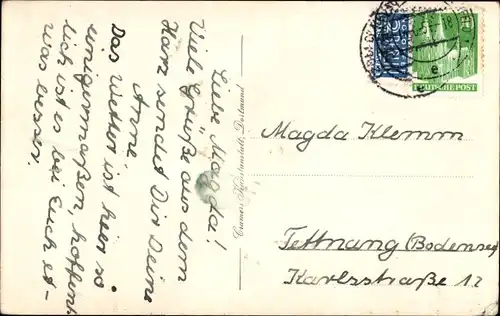 Liebe Magda!
Viele Grüße aus dem
Harz sendet Dir Deine
Anne.
Das Wetter ist hier so
einigermaßen, hoffent-
lich ist es bei Euch et-
was besser.
Cramers Kunstanstalt, Dortmund
DEUTSCHE POST
e
Magda Klemm
Tettnang (Bodensee)
Karlsstraße 12